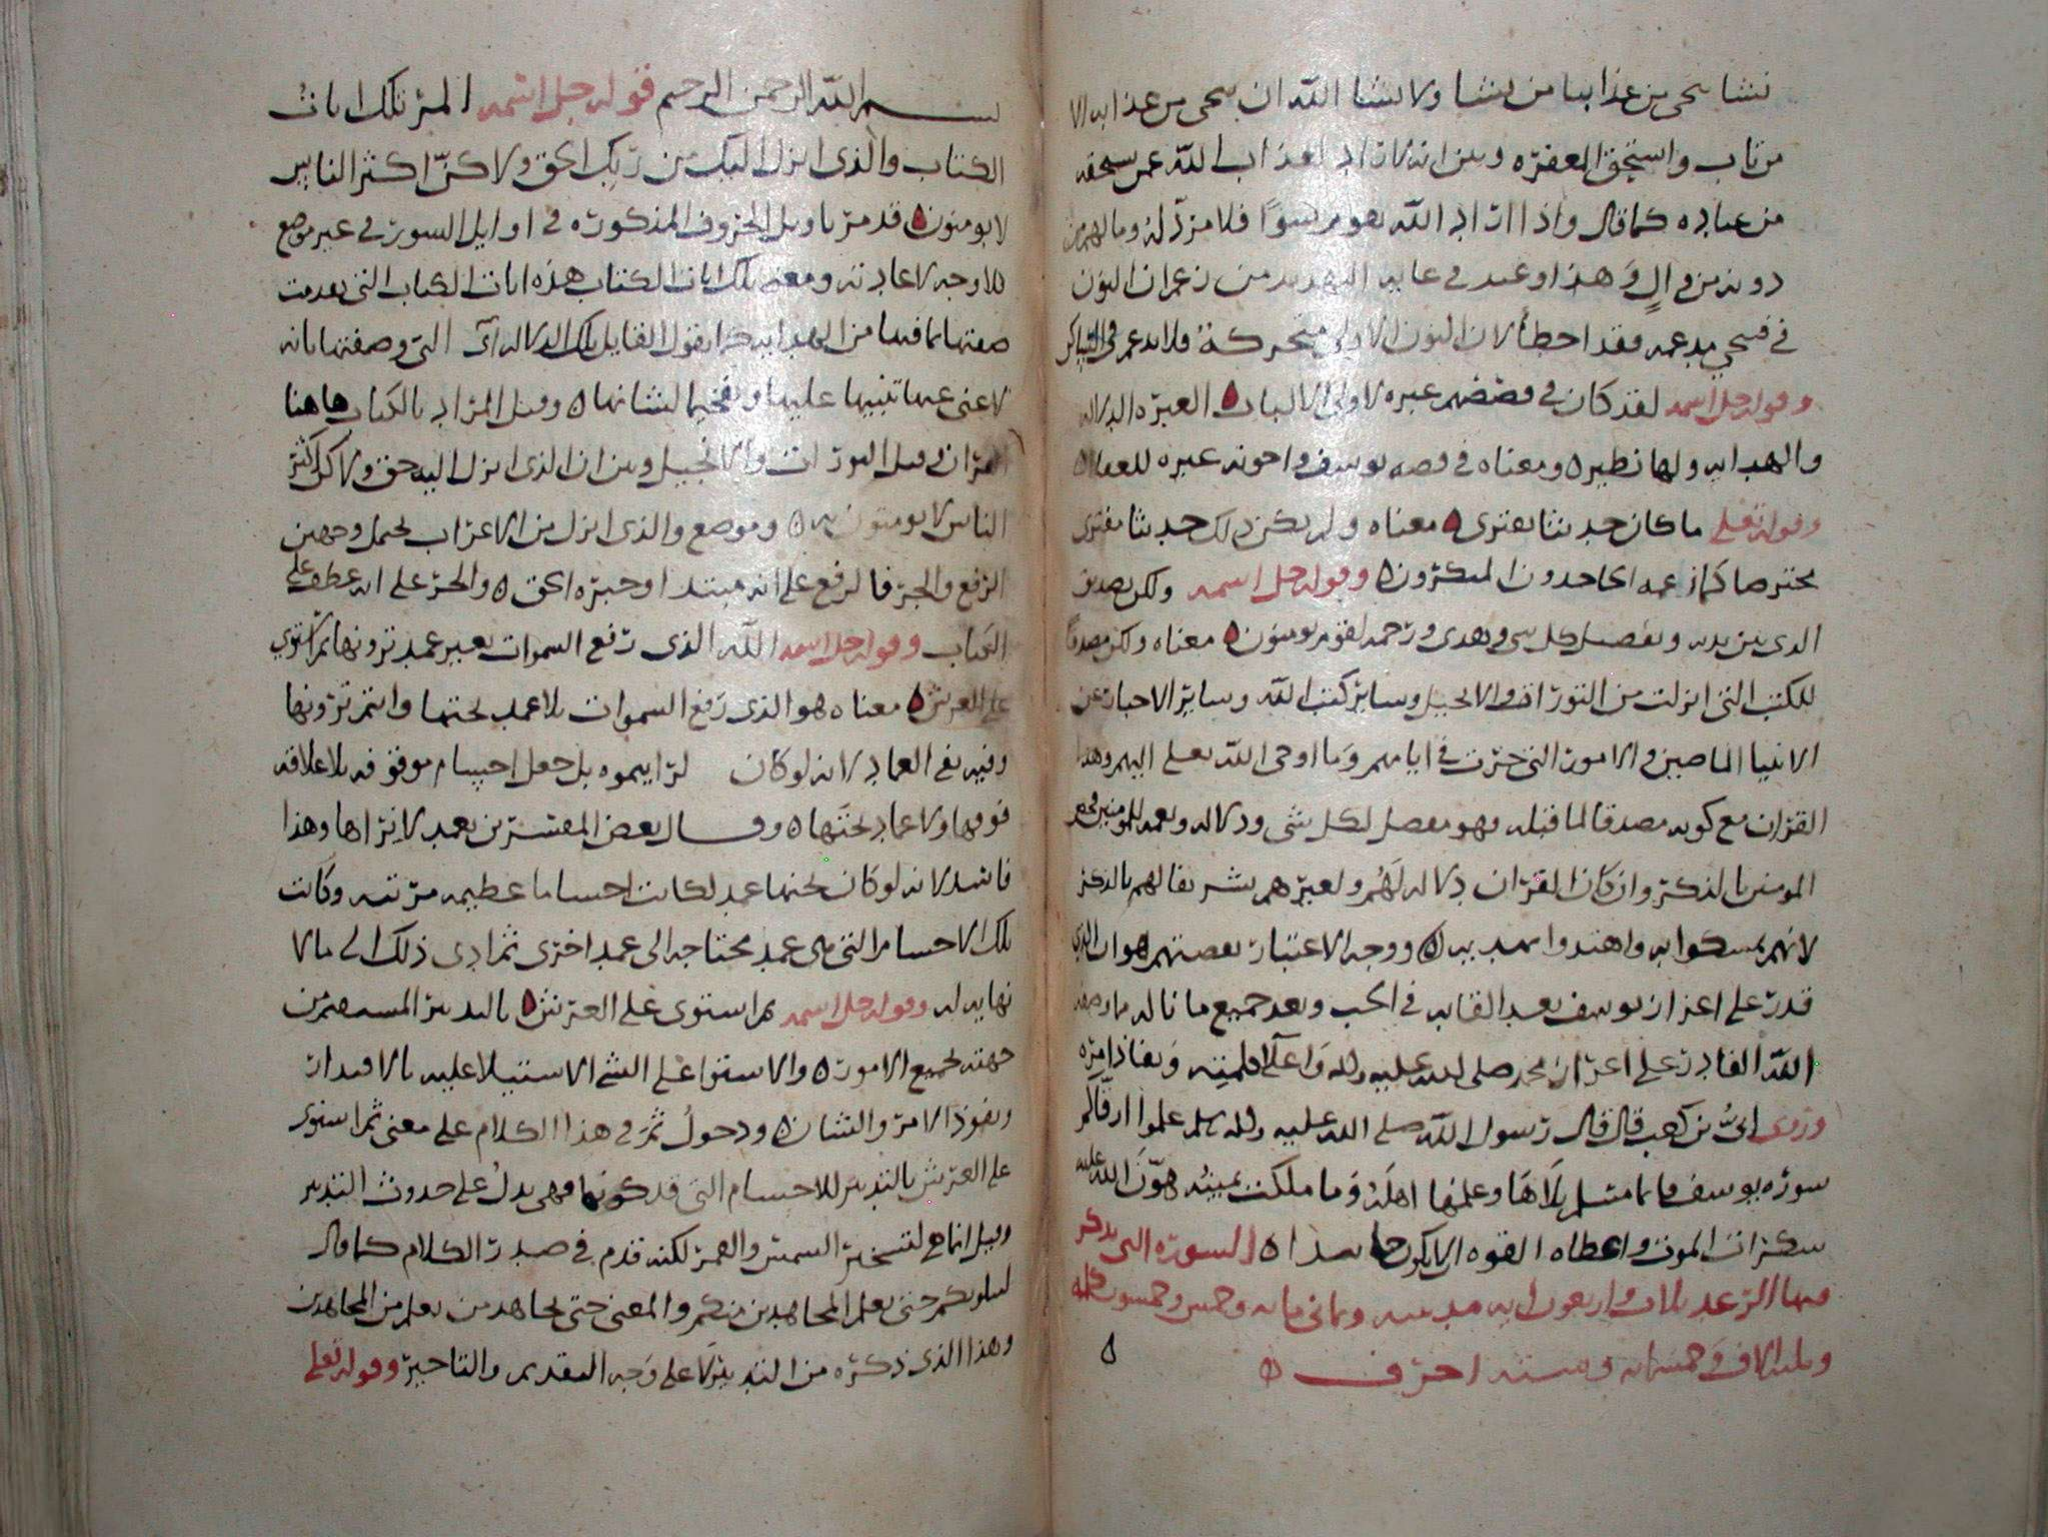 نشا نحى من عذابنا من نشا ولا نشا الله ان نحى من عذابه الا
من تاب واستحق المغفره وبين انه لا راد لعذاب الله عمن يستحقه
من عباده كما قال واذا اراد الله بقوم سوءا فلا مرد له وما لهم من
دونه من وال وهذا وعيد في غايه التهديد من زعم ان النون
في فنجي مدغمه فقد اخطا لان النون الاولى متحركة فلا تدغم في
وقوله جل اسمه لقد كان في قصصهم عبره لاولى الالباب العبره الدلاله
والهدايه ولها نظيره ومعناه في قصه يوسف واخوته عبره للعقلاه
وقوله تعلى ما كان حديثا يفترى معناه ولم يكن ذلك حديثا مفترى
مخترصا كما زعمه الجاحدون المنكرون وقوله جل اسمه ولكن تصديق
الذى بين يديه وتفصيل كل شى وهدى ورحمه لقوم يومنون معناه ولكن مصدقا
للكتب التى انزلت من التوراه والانجيل وسائر كتب الله وسائر الاخبار عن
الانبيا الماضين والامور التى جرت في ايامهم وما اوحى الله تعلى اليهم وهذا
القران مع كونه مصدقا لما قبله فهو مفصل لكل شى ودلاله ونعمه للمومنين
المومنين بالذكر وان كان القران دلاله لهم ولغيرهم تشريفا لهم بالذكر
لانهم تمسكوا به واهتدوا بهديه ووجه الاعتبار بقصتهم هو ان الذى
قدر على اعزاز يوسف بعد القايه في الجب وبعد جميع ما ناله
الله القادر على اعزاز محمد صلى الله عليه واله واعلا كلمته ونفاذ امره
وروى ابى بن كعب قال قال رسول الله صلى الله عليه واله وسلم علموا ارقاكم
سوره يوسف فانما مسلم تلاها وعلمها اهله وما ملكت يمينه هون الله عليه
سكرات الموت واعطاه القوه السوره التى يذكر
فيها الرعد ثلاث واربعون ايه مدنيه وثمانى مايه وخمس وخمسون كلمه
وثلثه الاف وخمسمايه وسته احرف
بسم الله الرحمن الرحيم قوله جل اسمه المر تلك ايات
الكتاب والذى انزل اليك من ربك الحق ولاكن اكثر الناس
لا يومنون قد مر تاويل الحروف المذكوره في اوايل السور في غير موضع
فلا وجه لاعادته ومعنى تلك ايات الكتاب هذه ايات الكتاب التى تقدمت
صفتها بما فيها من الهدايه كما يقول القايل تلك الدلاله اى التى وصفتها بانه
لا غنى عنها تنبيها عليها وتفخيما لشانها وقيل المراد بالكتاب هاهنا
القران وقيل التورات والانجيل وبين ان الذى انزل اليه حق ولاكن اكثر
الناس لا يومنون به وموضع والذى انزل من الاعراب يحتمل وجهين
الرفع والجر فالرفع على انه مبتدا وخبره الحق والجر على انه عطف على
الكتاب وقوله جل اسمه الله الذى رفع السموات بغير عمد ترونها ثم استوى
على العرش معناه هو الذى رفع السموات بلا عمد تحتها وانتم ترونها
وفيه نفى العماد لانه لو كان لرايتموه بل جعل اجسام موقوفه بلا علاقه
فوقها ولا عماد تحتها وقال بعض المفسرين بعمد لا نراها وهذا
فاسد لانه لو كان تحتها عمد لكانت اجساما عظيمه مرئيه وكانت
تلك الاجسام التى هى عمد محتاجه الى عمد اخرى ثم ادى ذلك الى مالا
نهايه له وقوله جل اسمه ثم استوى على العرش بالتدبير المستمر من
جهته لجميع الامور والاستوا على الشى الاستيلا عليه بالاقتدار
ونفوذ الامر والشان ودخول ثم في هذا الكلام على معنى ثم استوى
على العرش بالتدبير للاجسام التى قد كونها فهى يدل على حدوث التدبير
وقيل انما هى لتسخير الشمس والقمر لكنه قدم في صدر الكلام كما قال
لنبلونكم حتى نعلم المجاهدين منكم والمعنى حتى يجاهد من نعلم من المجاهدين
وهذا الذى ذكره من التدبير لا على وجه التقديم والتاخير وقوله تعلى